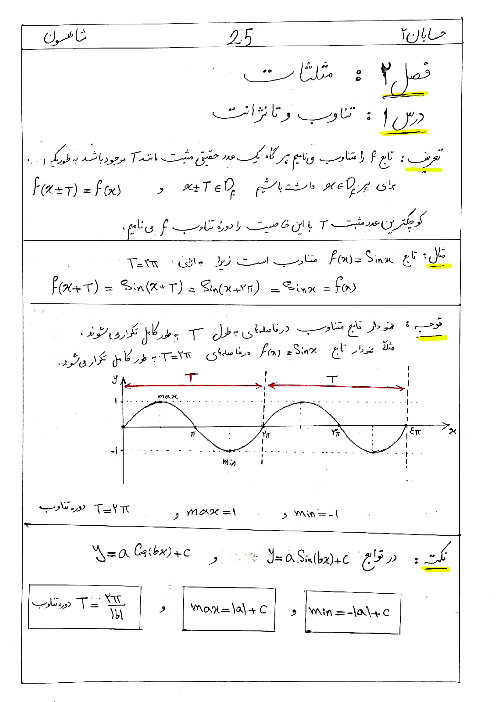 حسابان ۲ 25 شاهسون
فصل ۲ : مثلثات
درس ۱ : تناوب و تانژانت
تعریف : تابع f را متناوب می‌نامیم هرگاه یک عدد حقیقی مثبت مانند T موجود باشد به طوریکه :
برای هر x∈Df داشته باشیم x±T∈Df و f(x±T)=f(x)
کوچکترین عدد مثبت T با این خاصیت را دوره تناوب f می‌نامیم.
مثال : تابع f(x)=Sinx متناوب است زیرا به ازای T=۲π
f(x+T) = Sin(x+T) = Sin(x+۲π) = Sinx = f(x)
توجه : نمودار تابع متناوب در فاصله‌های به طول T به طور کامل تکرار می‌شوند.
مثلاً نمودار تابع f(x)=Sinx در فاصله‌های T=۲π به طور کامل تکرار می‌شود.
y T T
1 max
π ۲π ۳π ٤π x
-1 min
min=-1 و max=1 و T=۲π دوره تناوب
نکته : در توابع y=a Sin(bx)+c و y=a Cos(bx)+c
min=-|a|+c و max=|a|+c و T=۲π/|b| دوره تناوب